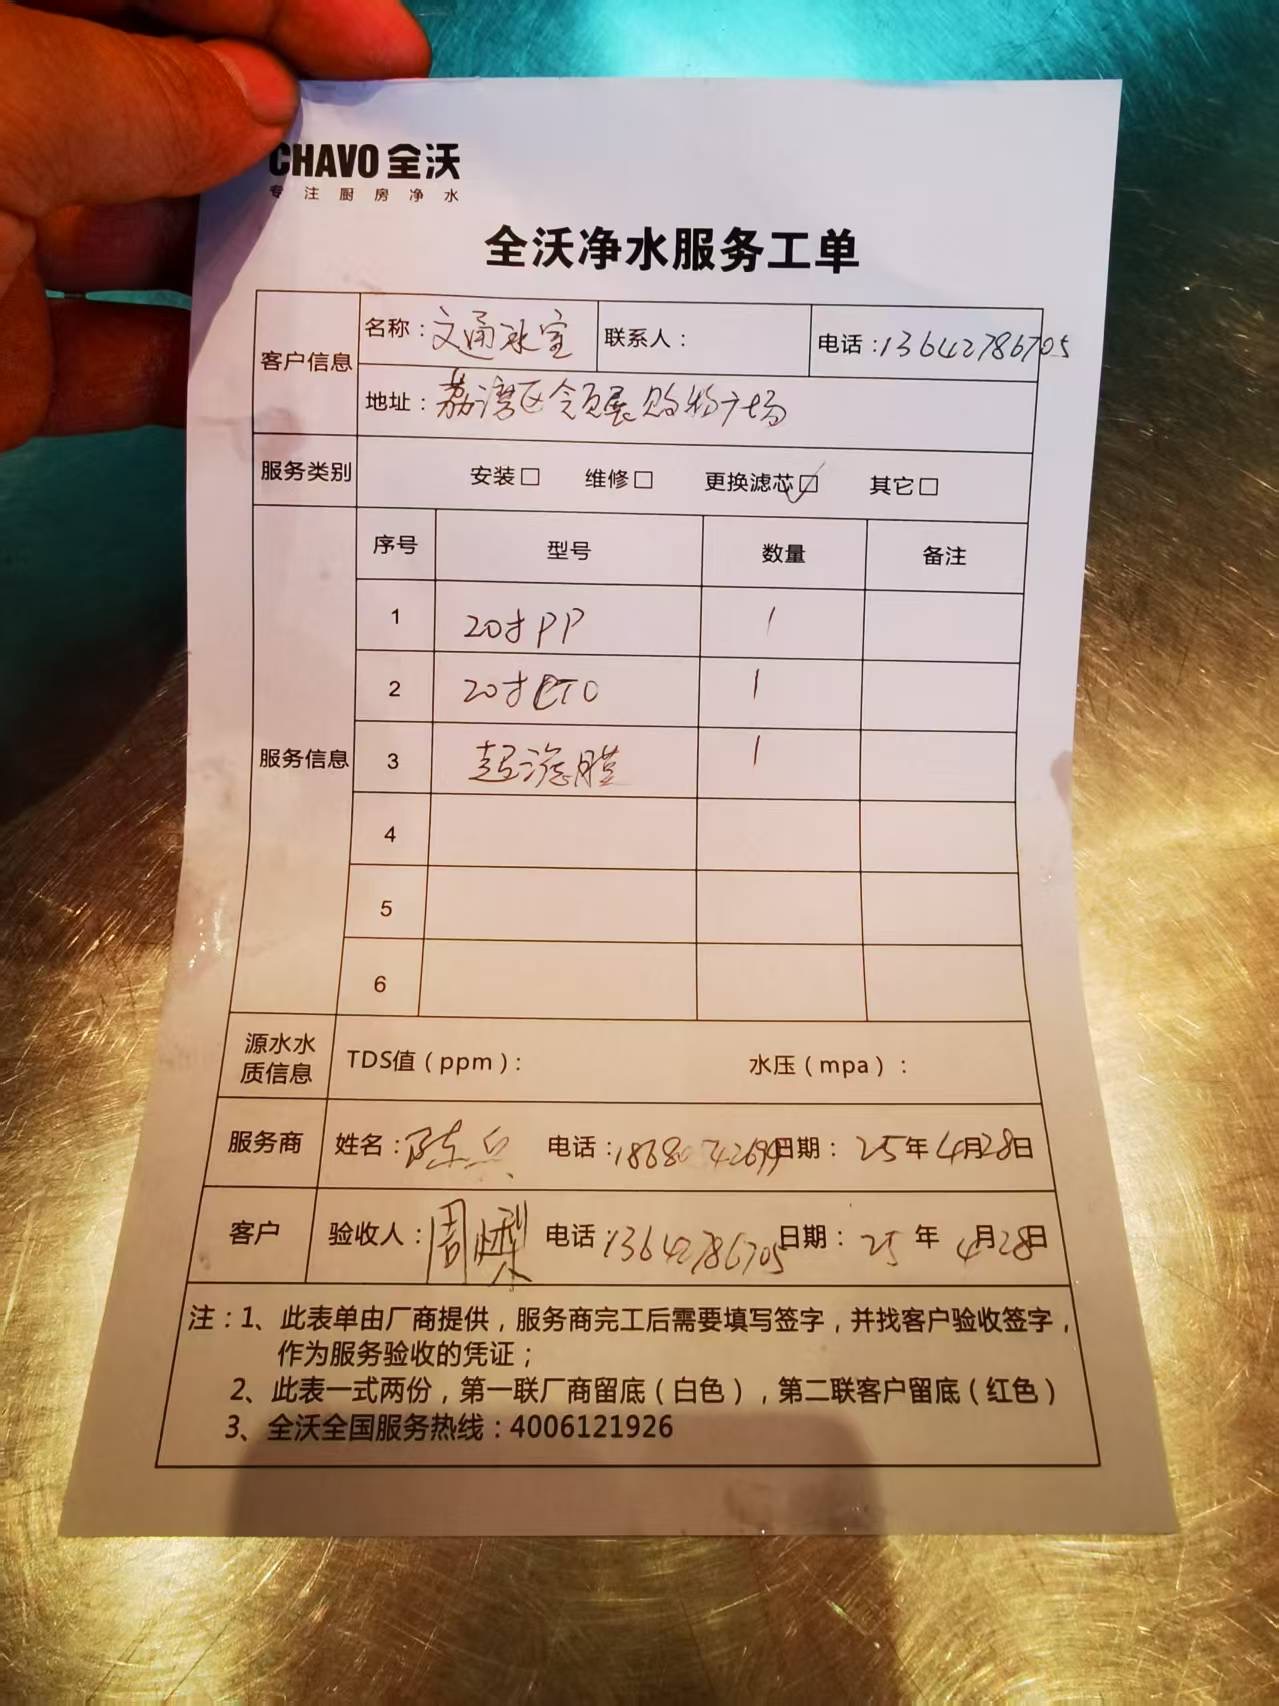 CHAVO 全沃
专注厨房净水
全沃净水服务工单
客户信息
名称：文通冰室 联系人： 电话：13642786705
地址：荔湾区领展购物广场
服务类别 安装□ 维修□ 更换滤芯☑ 其它□
服务信息
序号 型号 数量 备注
1 20寸PP 1
2 20寸CTO 1
3 超滤膜 1
4
5
6
源水水质信息 TDS值（ppm）： 水压（mpa）：
服务商 姓名：陈兵 电话： 日期：25年4月28日
客户 验收人：周 电话：13642786705 日期：25年4月28日
注：1、此表单由厂商提供，服务商完工后需要填写签字，并找客户验收签字，
作为服务验收的凭证；
2、此表一式两份，第一联厂商留底（白色），第二联客户留底（红色）
3、全沃全国服务热线：4006121926